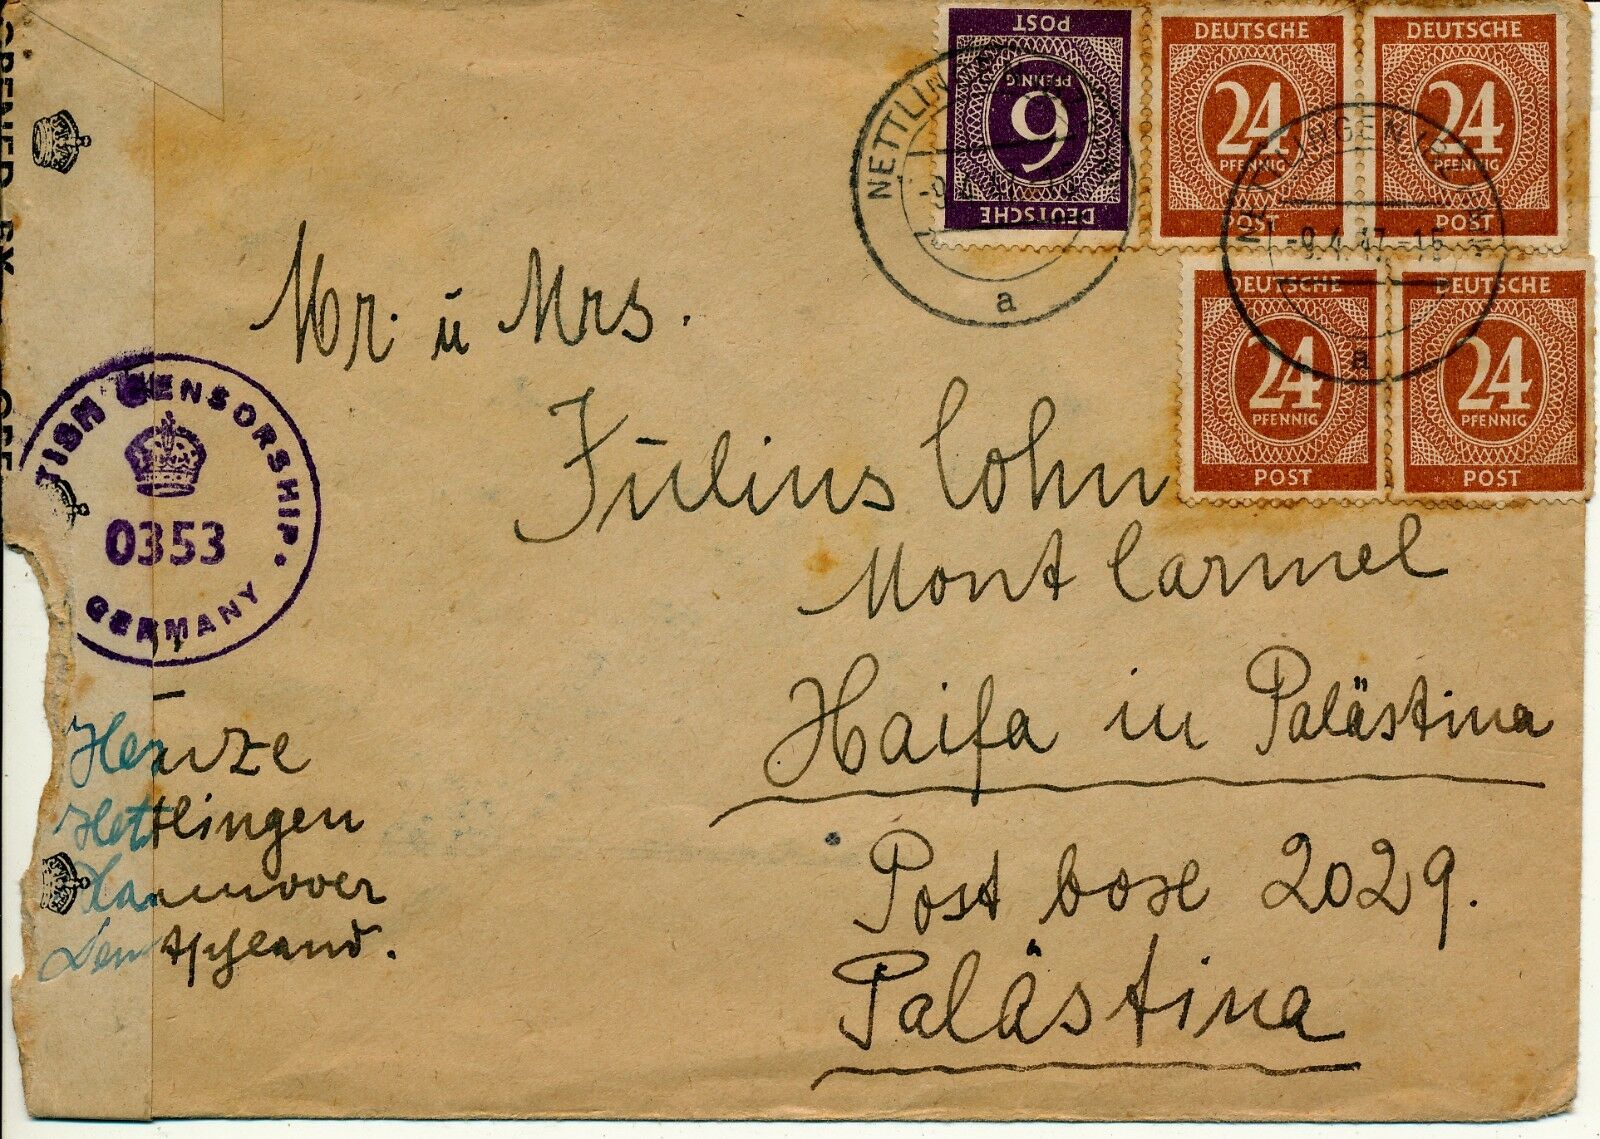 OPENED BY
DEUTSCHE
6
PFENNIG
POST
DEUTSCHE
24
PFENNIG
POST
DEUTSCHE
24
PFENNIG
POST
DEUTSCHE
24
PFENNIG
POST
DEUTSCHE
24
PFENNIG
POST
NETTLIN
a
-9.4.47.-15
a
Mr. u Mrs.
Julius Cohn
Mont Carmel
Haifa in Palästina
Post boxe 2029.
Palästina
TISH CENSORSHIP.
0353
GERMANY
Henze
Nettlingen
Hannover
Deutschland.